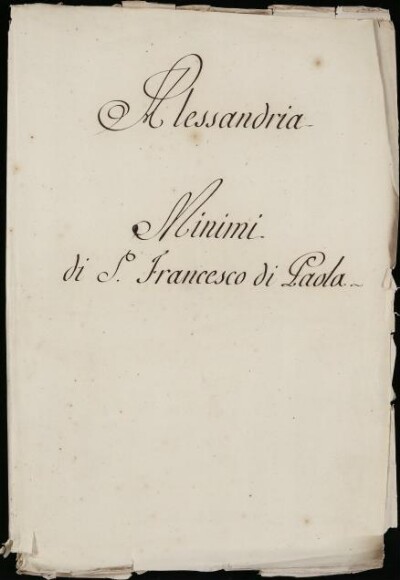 Alessandria
Minimi.
di S.º Francesco di Paola